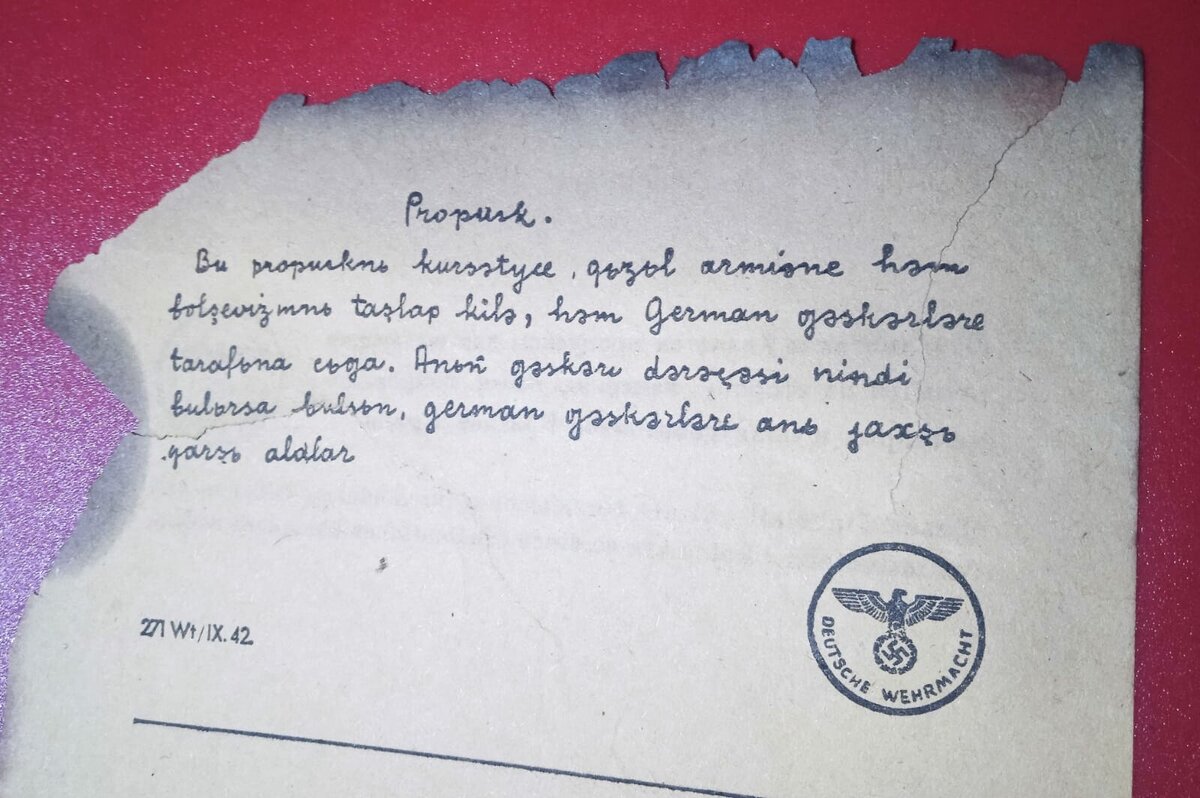 Propusk.
Bu propusknь kursətyce, qьzьl armiəne həm
bolşevizmnь taşlap kilə, həm German gəskərləre
tarafьna cьga. Anьꞑ gəskəri dərəçəsi nindi
bulьrsa bulsьn, german gəskərləre anь jaxşь
qarşь alalar
271 Wt/IX. 42.
DEUTSCHE WEHRMACHT